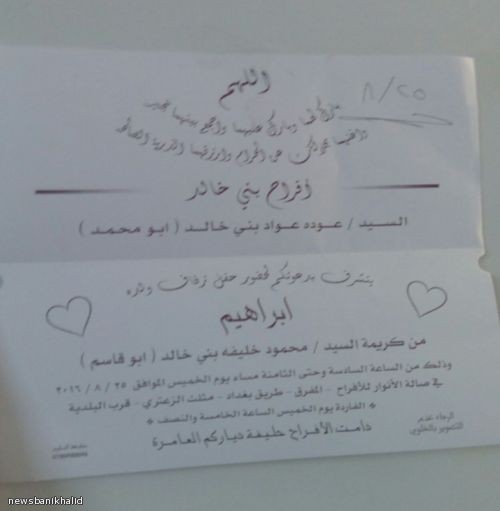 اللهم
٨/٢٥
بارك لهما وبارك عليهما واجمع بينهما بخير
واغنهما بحلالك عن الحرام وارزقهما الذرية الصالحة
أفراح بني خالد
السيد / عوده عواد بني خالد ( ابو محمد )
يتشرف بدعوتكم لحضور حفل زفاف ولده
ابراهيم
من كريمة السيد / محمود خليفه بني خالد ( ابو قاسم )
وذلك من الساعة السادسة وحتى الثامنة مساء يوم الخميس الموافق ٢٥ / ٨ / ٢٠١٦
في صالة الأنوار للأفراح - المفرق - طريق بغداد - مثلث الزعتري - قرب البلدية
* الفاردة يوم الخميس الساعة الخامسة والنصف *
دامت الأفراح حليفة دياركم العامرة
الرجاء عدم
التصوير بالخلوي
newsbanikhalid